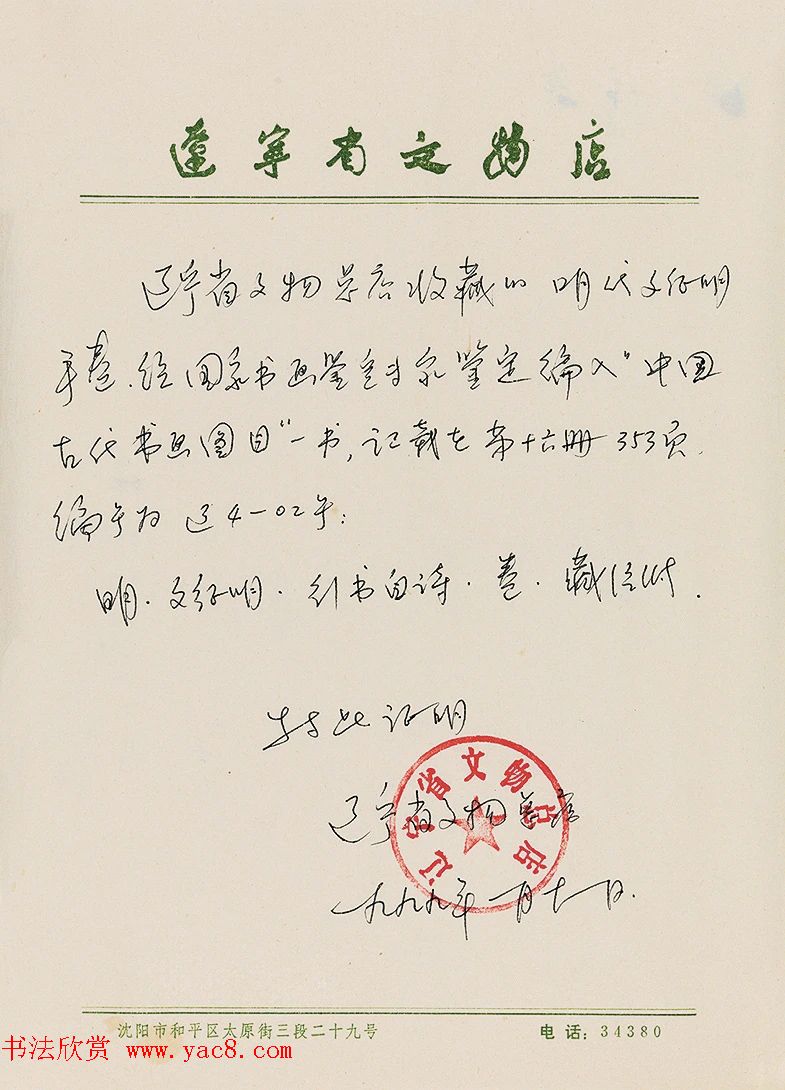 遼寧省文物店
辽宁省文物总店收藏的 明代文征明
手卷.经国家书画鉴定专家鉴定编入"中国
古代书画图目"一书,记载在第十六册353页.
编号为 辽4-02号:
明.文征明.行书自诗.卷.藏经纸.
特此证明
辽宁省文物总店
辽宁省文物总店
一九九九年一月十一日.
沈阳市和平区太原街三段二十九号 电话:34380
书法欣赏 www.yac8.com